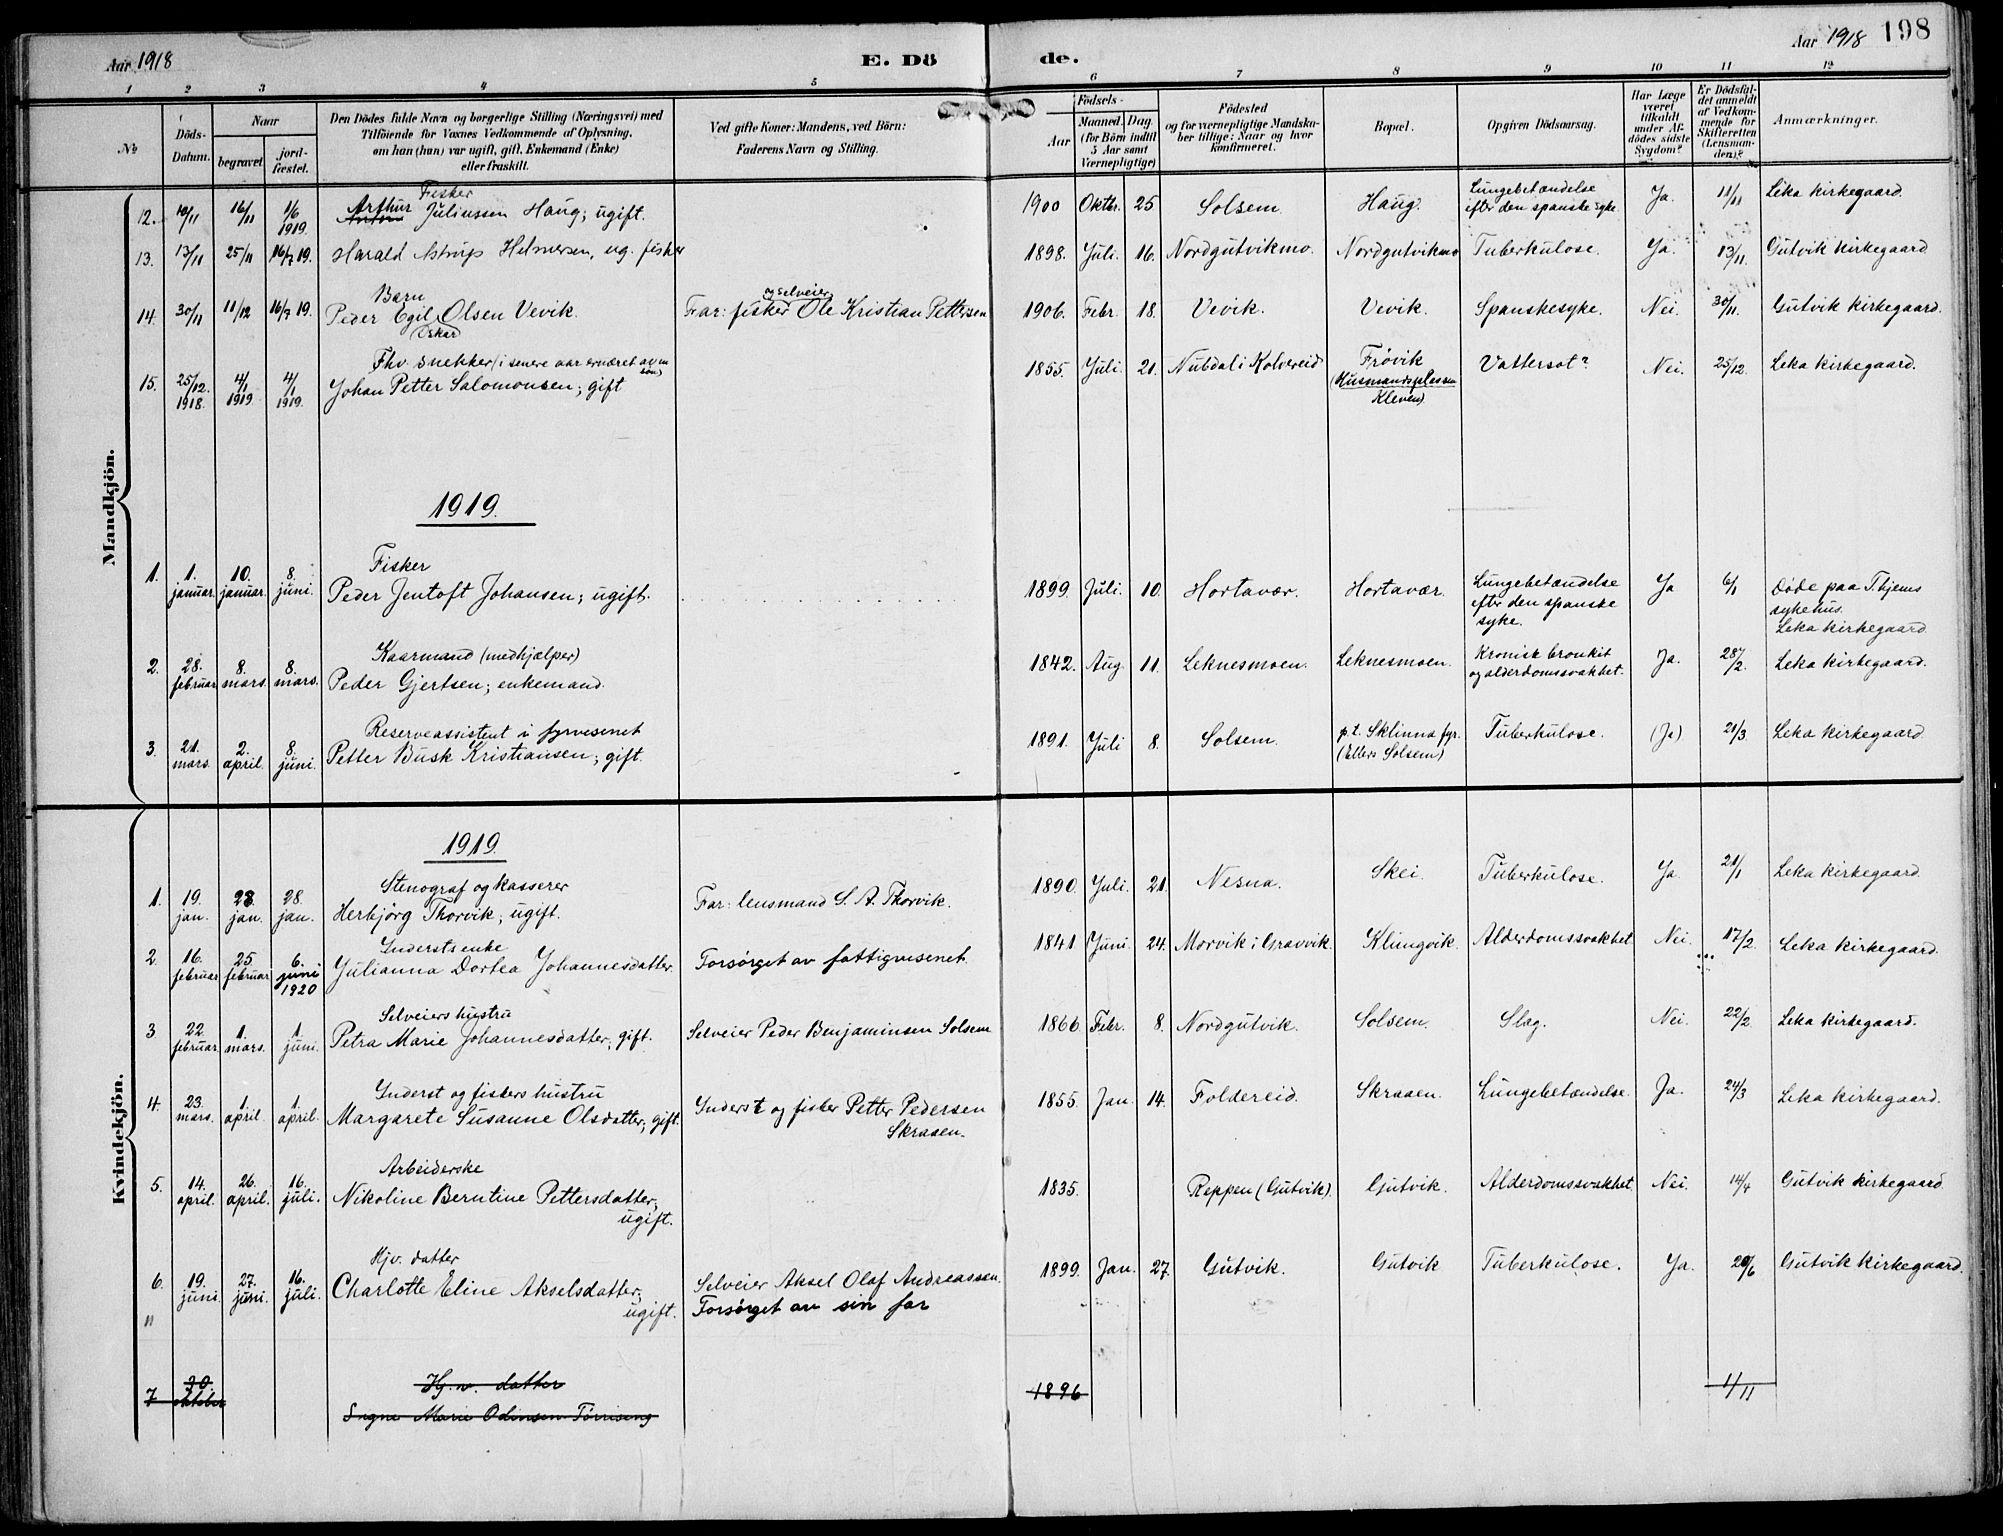 Aar 1918 E. Dö
de. Aar 1918 198
1 2 3 4 5 6 7 8 9 10 11 12
No
Döds-Datum.
Naar
begravet
jord-fæstet.
Den Dödes fulde Navn og borgerlige Stilling (Næringsvei) med
Tilföiende for Voxnes Vedkommende af Oplysning,
om han (hun) var ugift, gift, Enkemand (Enke)
eller fraskilt.
Ved gifte Koner: Mandens, ved Börn:
Faderens Navn og Stilling.
Födsels-
Aar
Maaned. Dag.
(for Börn indtil
5 Aar samt
Værnepligtige)
Födested
og for værnepligtige Mandska-
ber tillige: Naar og hvor
konfirmeret.
Bopæl.
Opgiven Dödsaarsag.
Har Læge
været
tilkaldt
under Af-
dödes sidste
Sygdom?
Er Dödsfal-
det anmeldt
af Vedkom-
mende for
Skifteretten
(Lensman-
den)?
Anmærkninger.
Mandkjön.
Fisker
12. 10/11 16/11 1/6 1919. Arthur Juliussen Haug; ugift. 1900 Oktbr. 25 Solsem. Haug. Lungebetændelse efter den spanske syke. Ja. 11/11 Leka kirkegaard.
13. 13/11 25/11 16/7 19. Harald Astrup Helmersen, ug. fisker 1898. Juli. 16. Nordgutvikmo. Nordgutvikmo Tuberkulose. Ja. 13/11. Gutvik kirkegaard
Barn og selveier
14. 30/11 11/12 16/7 19. Peder Egil Olsen Vevik. Far: fisker Ole Kristian Pettersen 1906. Febr. 18. Vevik. Vevik. Spanskesyke. Nei. 30/11. Gutvik kirkegaard.
Oskar
Fhv. snekker (i senere aar ernæret av en søn)
15. 25/12. 1918. 4/1 1919 4/1 1919. Johan Petter Salomonsen; gift 1855. Juli. 21. Nubdal i Kolvereid Frövik (Husmandsplassen Kleven) Vattersot? Nei. 25/12. Leka kirkegaard.
1919.
Fisker
1. 1. januar. 10. januar. 8. juni. Peder Jentoft Johansen; ugift. 1899. Juli. 10. Hortavær. Hortavær. Lungebetændelse efter den spanske syke. Ja 6/1 Døde paa Thjems sykehus. Leka kirkegaard.
Kaarmand (medhjælper)
2. 28. februar 8. mars. 8. mars. Peder Gjertsen; enkemand. 1842. Aug. 11. Leknesmoen. Leknesmoen. Kronisk bronkit og alderdomssvakhet. Ja. 28/2. Leka kirkegaard.
Reserveassistent i fyrvesenet
3. 21. mars. 2. april. 8. juni. Petter Busk Kristiansen; gift. 1891. Juli 8. Solsem. p.t. Sklinna fyr. (Ellers Solsem) Tuberkulose. (Ja) 21/3. Leka kirkegaard
Kvindekjön.
1919.
Stenograf og kasserer
1. 19. jan. 28. jan. 28. jan. Herbjørg Thorvik; ugift. Far: lensmand S. A. Thorvik. 1890. Juli. 21. Nesna. Skei. Tuberkulose. Ja. 21/1 Leka kirkegaard.
Inderstsenke
2. 16. februar 25 februar 6. juni 1920 Julianna Dortea Johannesdatter. Forsørget av fattigvesenet 1841 Juni. 24. Morvik i Gravvik. Klungvik. Alderdomssvakhet Nei. 17/2. Leka kirkegaard.
Selveiers hustru
3 22. februar 1. mars. 1. juni. Petra Marie Johannesdatter; gift. Selveier Peder Benjaminsen Solsem 1866 Febr. 8. Nordgutvik. Solsem. Slag. Nei. 22/2. Leka kirkegaard.
Inderst og fiskers hustru
4. 23. mars. 1. april. 1. april. Margarete Susanne Olsdatter; gift. Inderst og fisker Petter Pedersen Skraaen. 1855. Jan. 14. Foldereid. Skraaen. Lungebetændelse. Ja. 24/3 Leka kirkegaard.
Arbeiderske
5. 14. april. 26. april. 16. juli. Nikoline Berntine Pettersdatter; ugift. 1835. Reppen (Gutvik). Gutvik. Alderdomssvakhet Nei. 14/4 Gutvik kirkegaard
Hjv. datter
6. 19. juni. 27. juni. 16. juli. Charlotte Eline Akselsdatter; ugift. Selveier Aksel Olaf Andreassen. Forsørget av sin far 1899. Jan. 27. Gutvik. Gutvik Tuberkulose. Ja. 20/6 Gutvik kirkegaard.
11
Hj. v. datter
7 30. oktober Signe Marie Odinsen Tørriseng 1896 1/11